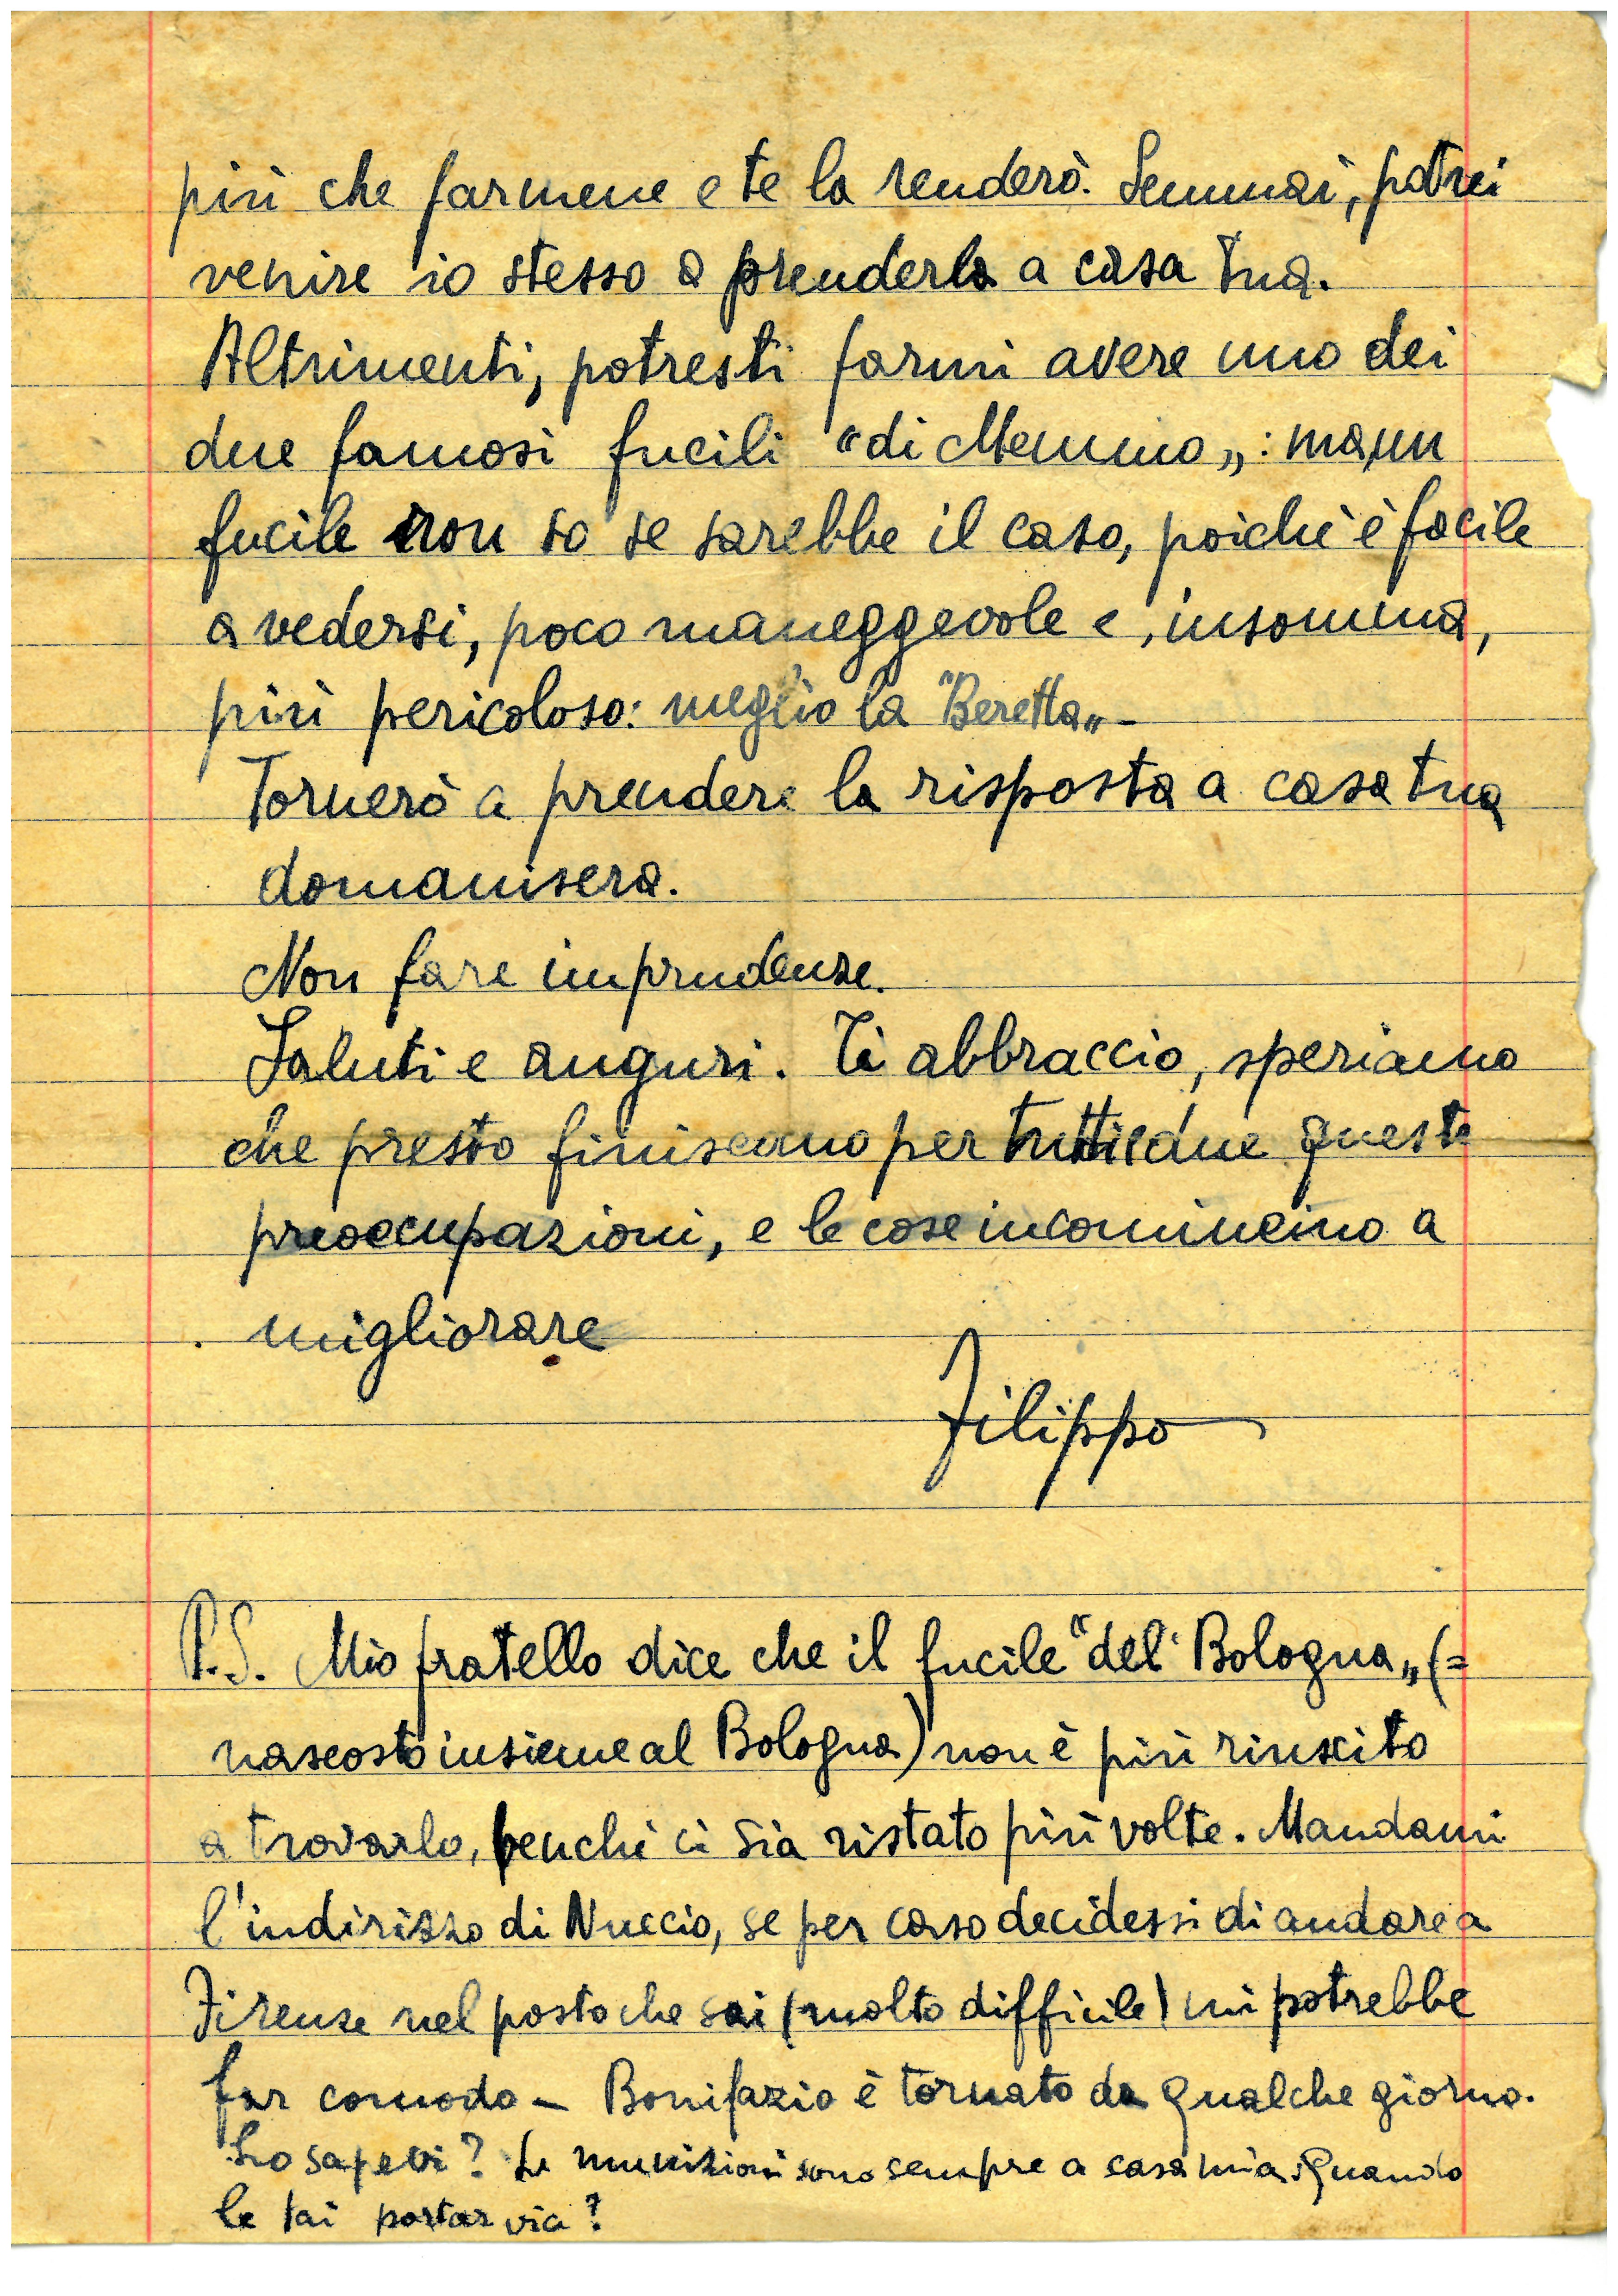 più che farmene e te la renderò. Semmai, potrei
venire io stesso a prenderla a casa tua.
Altrimenti, potresti farmi avere uno dei
due famosi fucili "di Memmo„: ma, un
fucile non so se sarebbe il caso, poiché è facile
a vedersi, poco maneggevole e, insomma,
più pericoloso: meglio la "Beretta„ -
Tornerò a prendere la risposta a casa tua
domanisera.
Non fare imprudenze.
Saluti e auguri. Ti abbraccio, speriamo
che presto finiscano per tutti e due queste
preoccupazioni, e le cose incomincino a
migliorare
Filippo
P.S. Mio fratello dice che il fucile "del Bologna„ (=
nascosto insieme al Bologna) non è più riuscito
a trovarlo, benché ci sia ristato più volte. Mandami
l'indirizzo di Nuccio, se per caso decidessi di andare a
Firenze nel posto che sai (molto difficile) mi potrebbe
far comodo - Bonifazio è tornato da qualche giorno.
Lo sapevi? Le munizioni sono sempre a casa mia. Quando
le fai portar via?